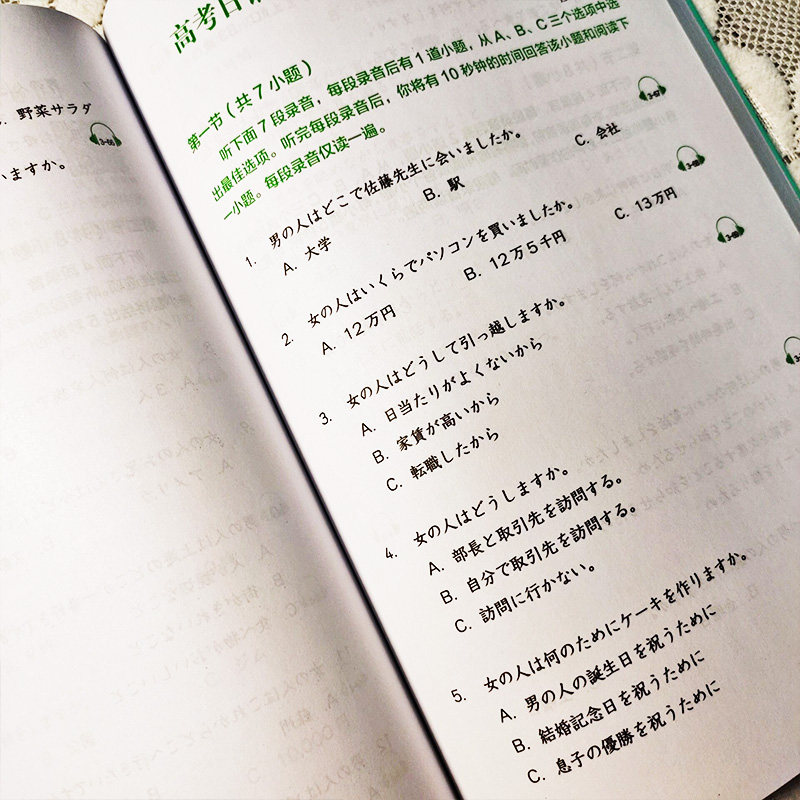 野菜サラダ
いますか。
高考日
第一节（共 7 小题）
听下面 7 段录音，每段录音后有 1 道小题，从 A、B、C 三个选项中选
出最佳选项。听完每段录音后，你将有 10 秒钟的时间回答该小题和阅读下
一小题。每段录音仅读一遍。
1. 男の人はどこで佐藤先生に会いましたか。
A. 大学 B. 駅 C. 会社
2. 女の人はいくらでパソコンを買いましたか。
A. 12万円 B. 12万5千円 C. 13万円
3. 女の人はどうして引っ越しますか。
A. 日当たりがよくないから
B. 家賃が高いから
C. 転職したから
4. 女の人はどうしますか。
A. 部長と取引先を訪問する。
B. 自分で取引先を訪問する。
C. 訪問に行かない。
5. 女の人は何のためにケーキを作りますか。
A. 男の人の誕生日を祝うために
B. 結婚記念日を祝うために
C. 息子の優勝を祝うために